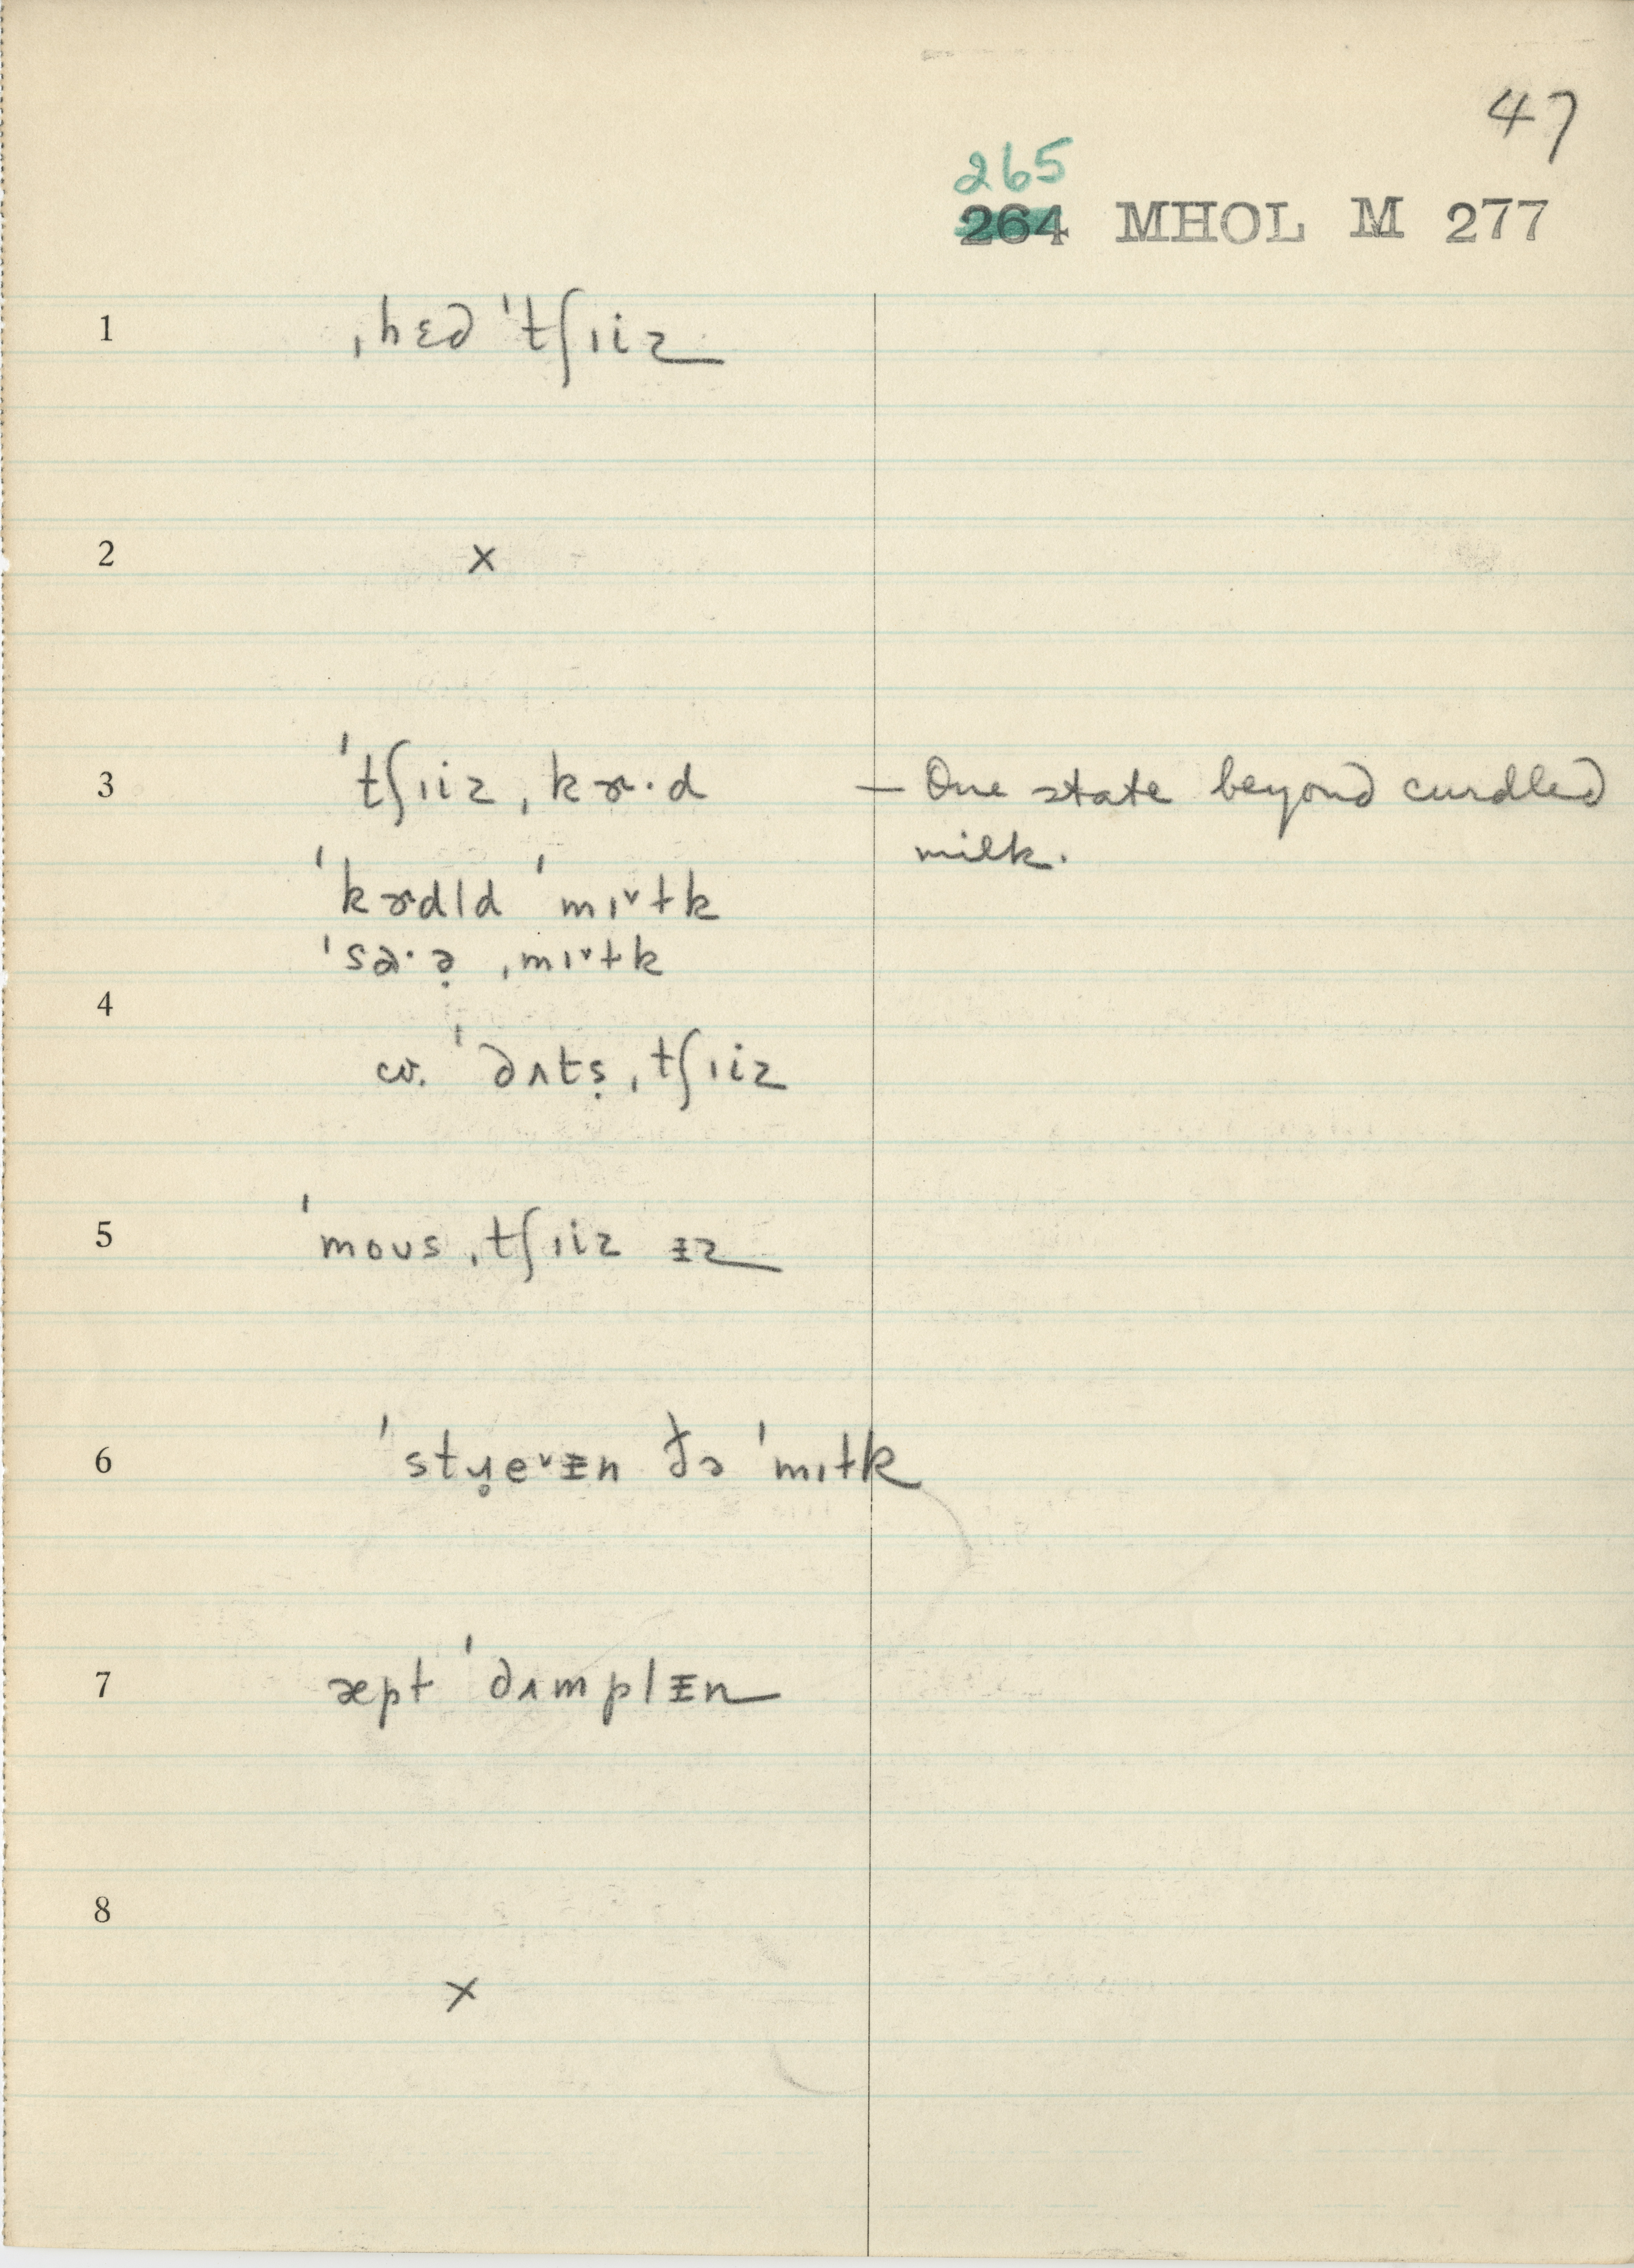 47
265
264 MHOL M 277
1 ˌhɛd ˈtʃɪiz
2 x
3 ˈtʃɪizˌkɚ·d — One state beyond curdled
milk.
ˈkɚdld ˈmɪ˅ɫk
ˈsa·ə̣ ˌmɪ˅ɫk
4
cv. ˈdʌtṣˌtʃɪiz
5 ˈmoʊsˌtʃɪiz ᵻz
6 ˈstɹ̥e˅ᵻn ðə ˈmɪɫk
7 æpt ˈdʌmplᵻn
8
x